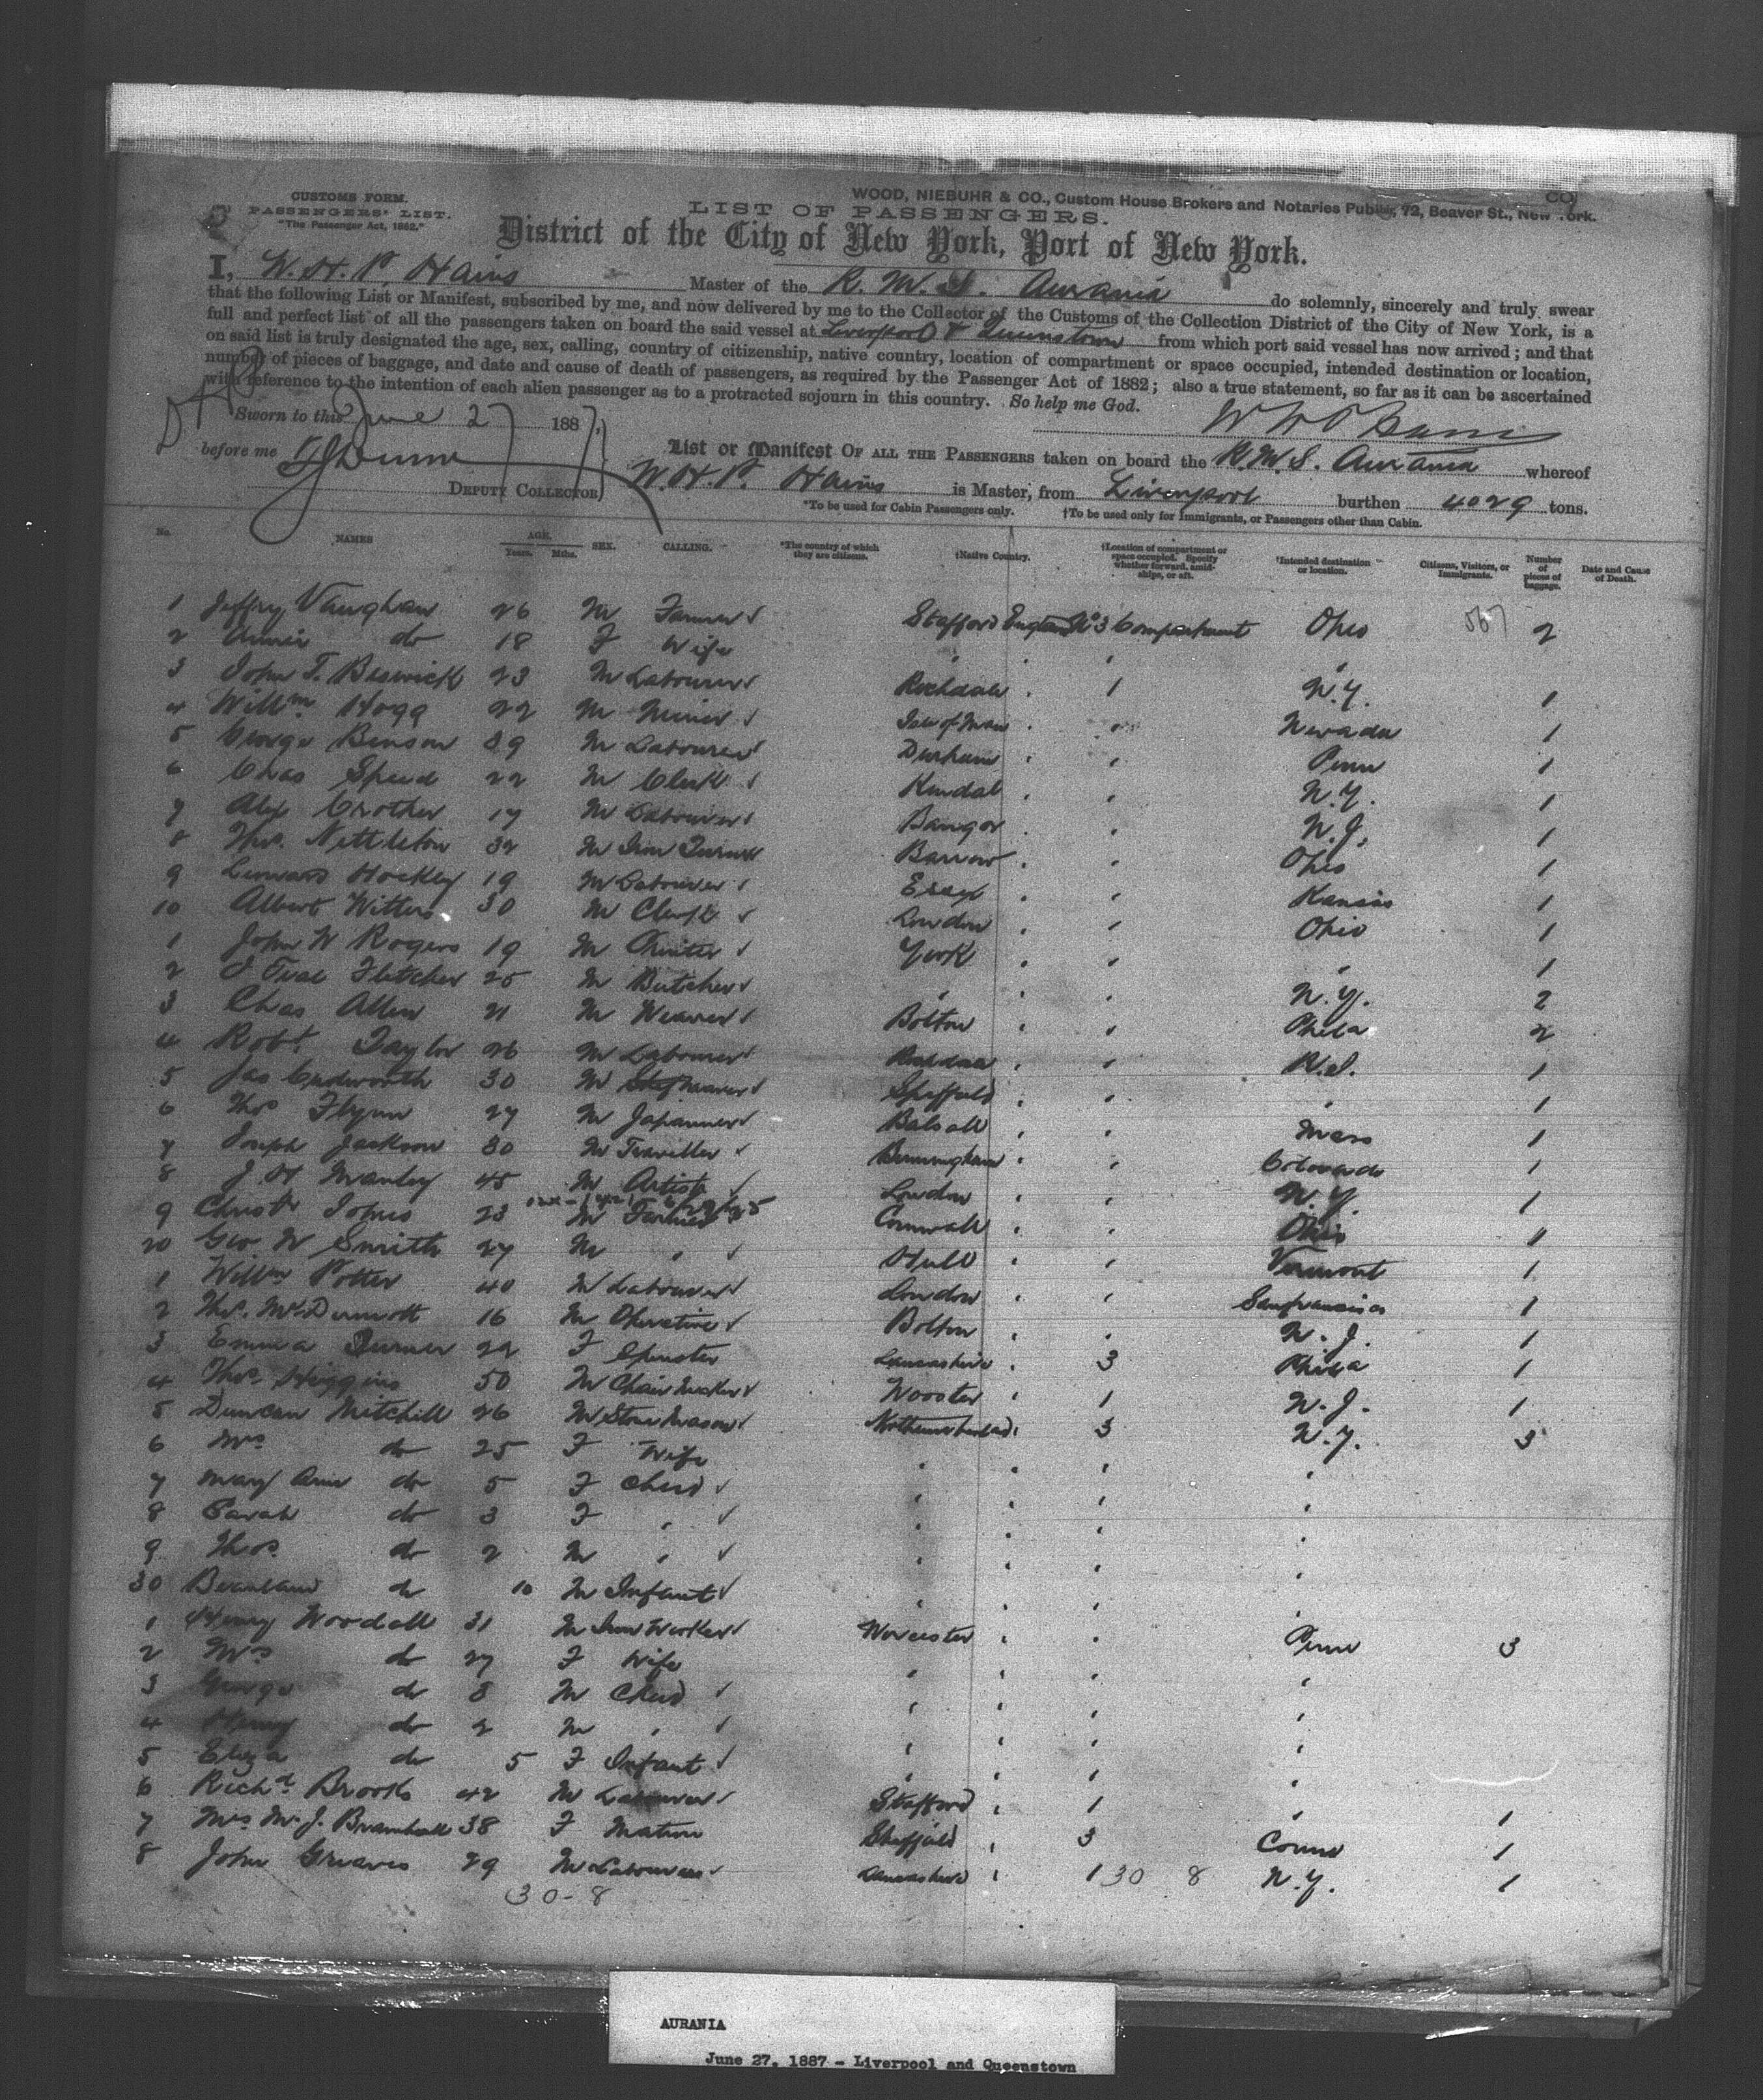 CUSTOMS FORM.
PASSENGERS' LIST.
"The Passenger Act, 1882."
WOOD, NIEBUHR & CO., Custom House Brokers and Notaries Public, 72, Beaver St., New York.
LIST OF PASSENGERS.
District of the City of New York, Port of New York.
I, W. H. P. Hains Master of the R. M. S. Aurania do solemnly, sincerely and truly swear
that the following List or Manifest, subscribed by me, and now delivered by me to the Collector of the Customs of the Collection District of the City of New York, is a
full and perfect list of all the passengers taken on board the said vessel at Liverpool & Queenstown from which port said vessel has now arrived; and that
on said list is truly designated the age, sex, calling, country of citizenship, native country, location of compartment or space occupied, intended destination or location,
number of pieces of baggage, and date and cause of death of passengers, as required by the Passenger Act of 1882; also a true statement, so far as it can be ascertained
with reference to the intention of each alien passenger as to a protracted sojourn in this country. So help me God.
Sworn to this June 27 1887,
W H P Hains
before me
DEPUTY COLLECTOR
List or Manifest OF ALL THE PASSENGERS taken on board the R.M.S. Aurania whereof
W. H. P. Hains is Master, from Liverpool burthen 4029 tons.
*To be used for Cabin Passengers only. †To be used only for Immigrants, or Passengers other than Cabin.
No. NAMES AGE. Years. Mths. SEX. CALLING. *The country of which they are citizens. †Native Country. †Location of compartment or space occupied. Specify whether forward, amidships, or aft. †Intended destination or location. Citizens, Visitors, or Immigrants. Number of pieces of baggage. Date and Cause of Death.
1 Jeffry Vaughan 26 M Farmer Stafford England No 3 Compartment Ohio 567 2
2 Annie do 18 F Wife
3 John T. Beswick 23 M Labourer Rochdale 1 N.Y. 1
4 Willm Hogg 22 M Miner Isle of Man Nevada 1
5 George Benson 39 M Labourer Durham Penn 1
6 Chas Speed 22 M Clerk Kendal N.Y. 1
7 Alex Crother 17 M Labourer Bangor N.J. 1
8 Thos. Nettleton 32 M Iron Turner Barrow Ohio 1
9 Leonard Hockley 19 M Labourer Essex Kansas 1
10 Albert Witters 30 M Clerk London Ohio 1
1 John W Rogers 19 M York 1
2 Fletcher 25 M Butcher N.Y. 2
3 Chas Allen 21 M Weaver Bolton Phila 2
4 Robt. Taylor 26 M Labourer Rochdale R.I. 1
5 Jas Cudworth 30 M Sheffield 1
6 Thos Flynn 27 M Japanner Mass 1
7 Joseph Jackson 30 M Traveller Birmingham Colorado 1
8 J. H Manley 45 M Artist London N.Y. 1
9 Christr Johns 23 M Farmer Cornwall Ohio
20 Geo. W Smith 27 M Hull Vermont 1
1 Willm Potter 40 M Labourer London Sanfrancisco 1
2 Thos. McDermott 16 M Operative Bolton N.J. 1
3 Emma Turner 22 F Spinster Lancashire 3 Phila 1
4 Thos. Higgins 50 M Chair Maker Wooster 1 N.J. 1
5 Duncan Mitchell 26 M Stone Mason Northumberland 3 N.Y. 3
6 Mrs do 25 F Wife
7 Mary Ann do 5 F Child
8 Sarah do 3 F
9 Thos. do 2 M
30 do 10 M Infant
1 Henry Woodall 31 M Iron Worker Worcester Penn 3
2 Mrs do 27 F Wife
3 George do 8 M Child
4 Henry do 2 M
5 Eliza do 5 F Infant
6 Richd. Brooks 42 M Labourer Stafford 1 1
7 Mrs M. J. Bramhall 38 F Matron Sheffield 3 Conn 1
8 John Greaves 29 M Labourer Lancashire 1 30 8 N.Y. 1
30-8
AURANIA
June 27, 1887 - Liverpool and Queenstown